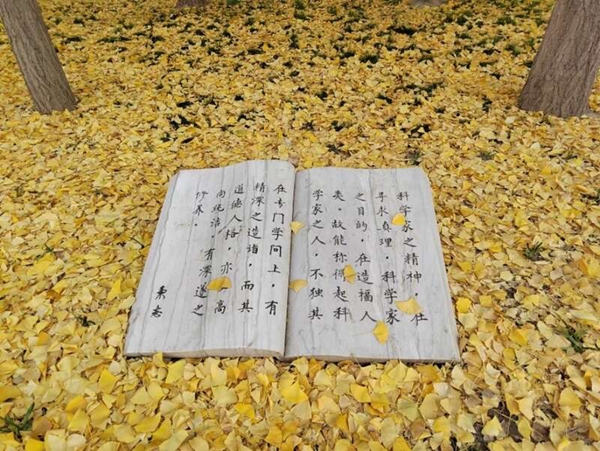 科学家之精神，在
寻求真理，科学家
之目的，在造福人
类，故能称得起科
学家之人，不独其
在专门学问上，有
精深之造诣，而其
道德人格，亦高
尚纯洁，有深邃之
修养。
秉志